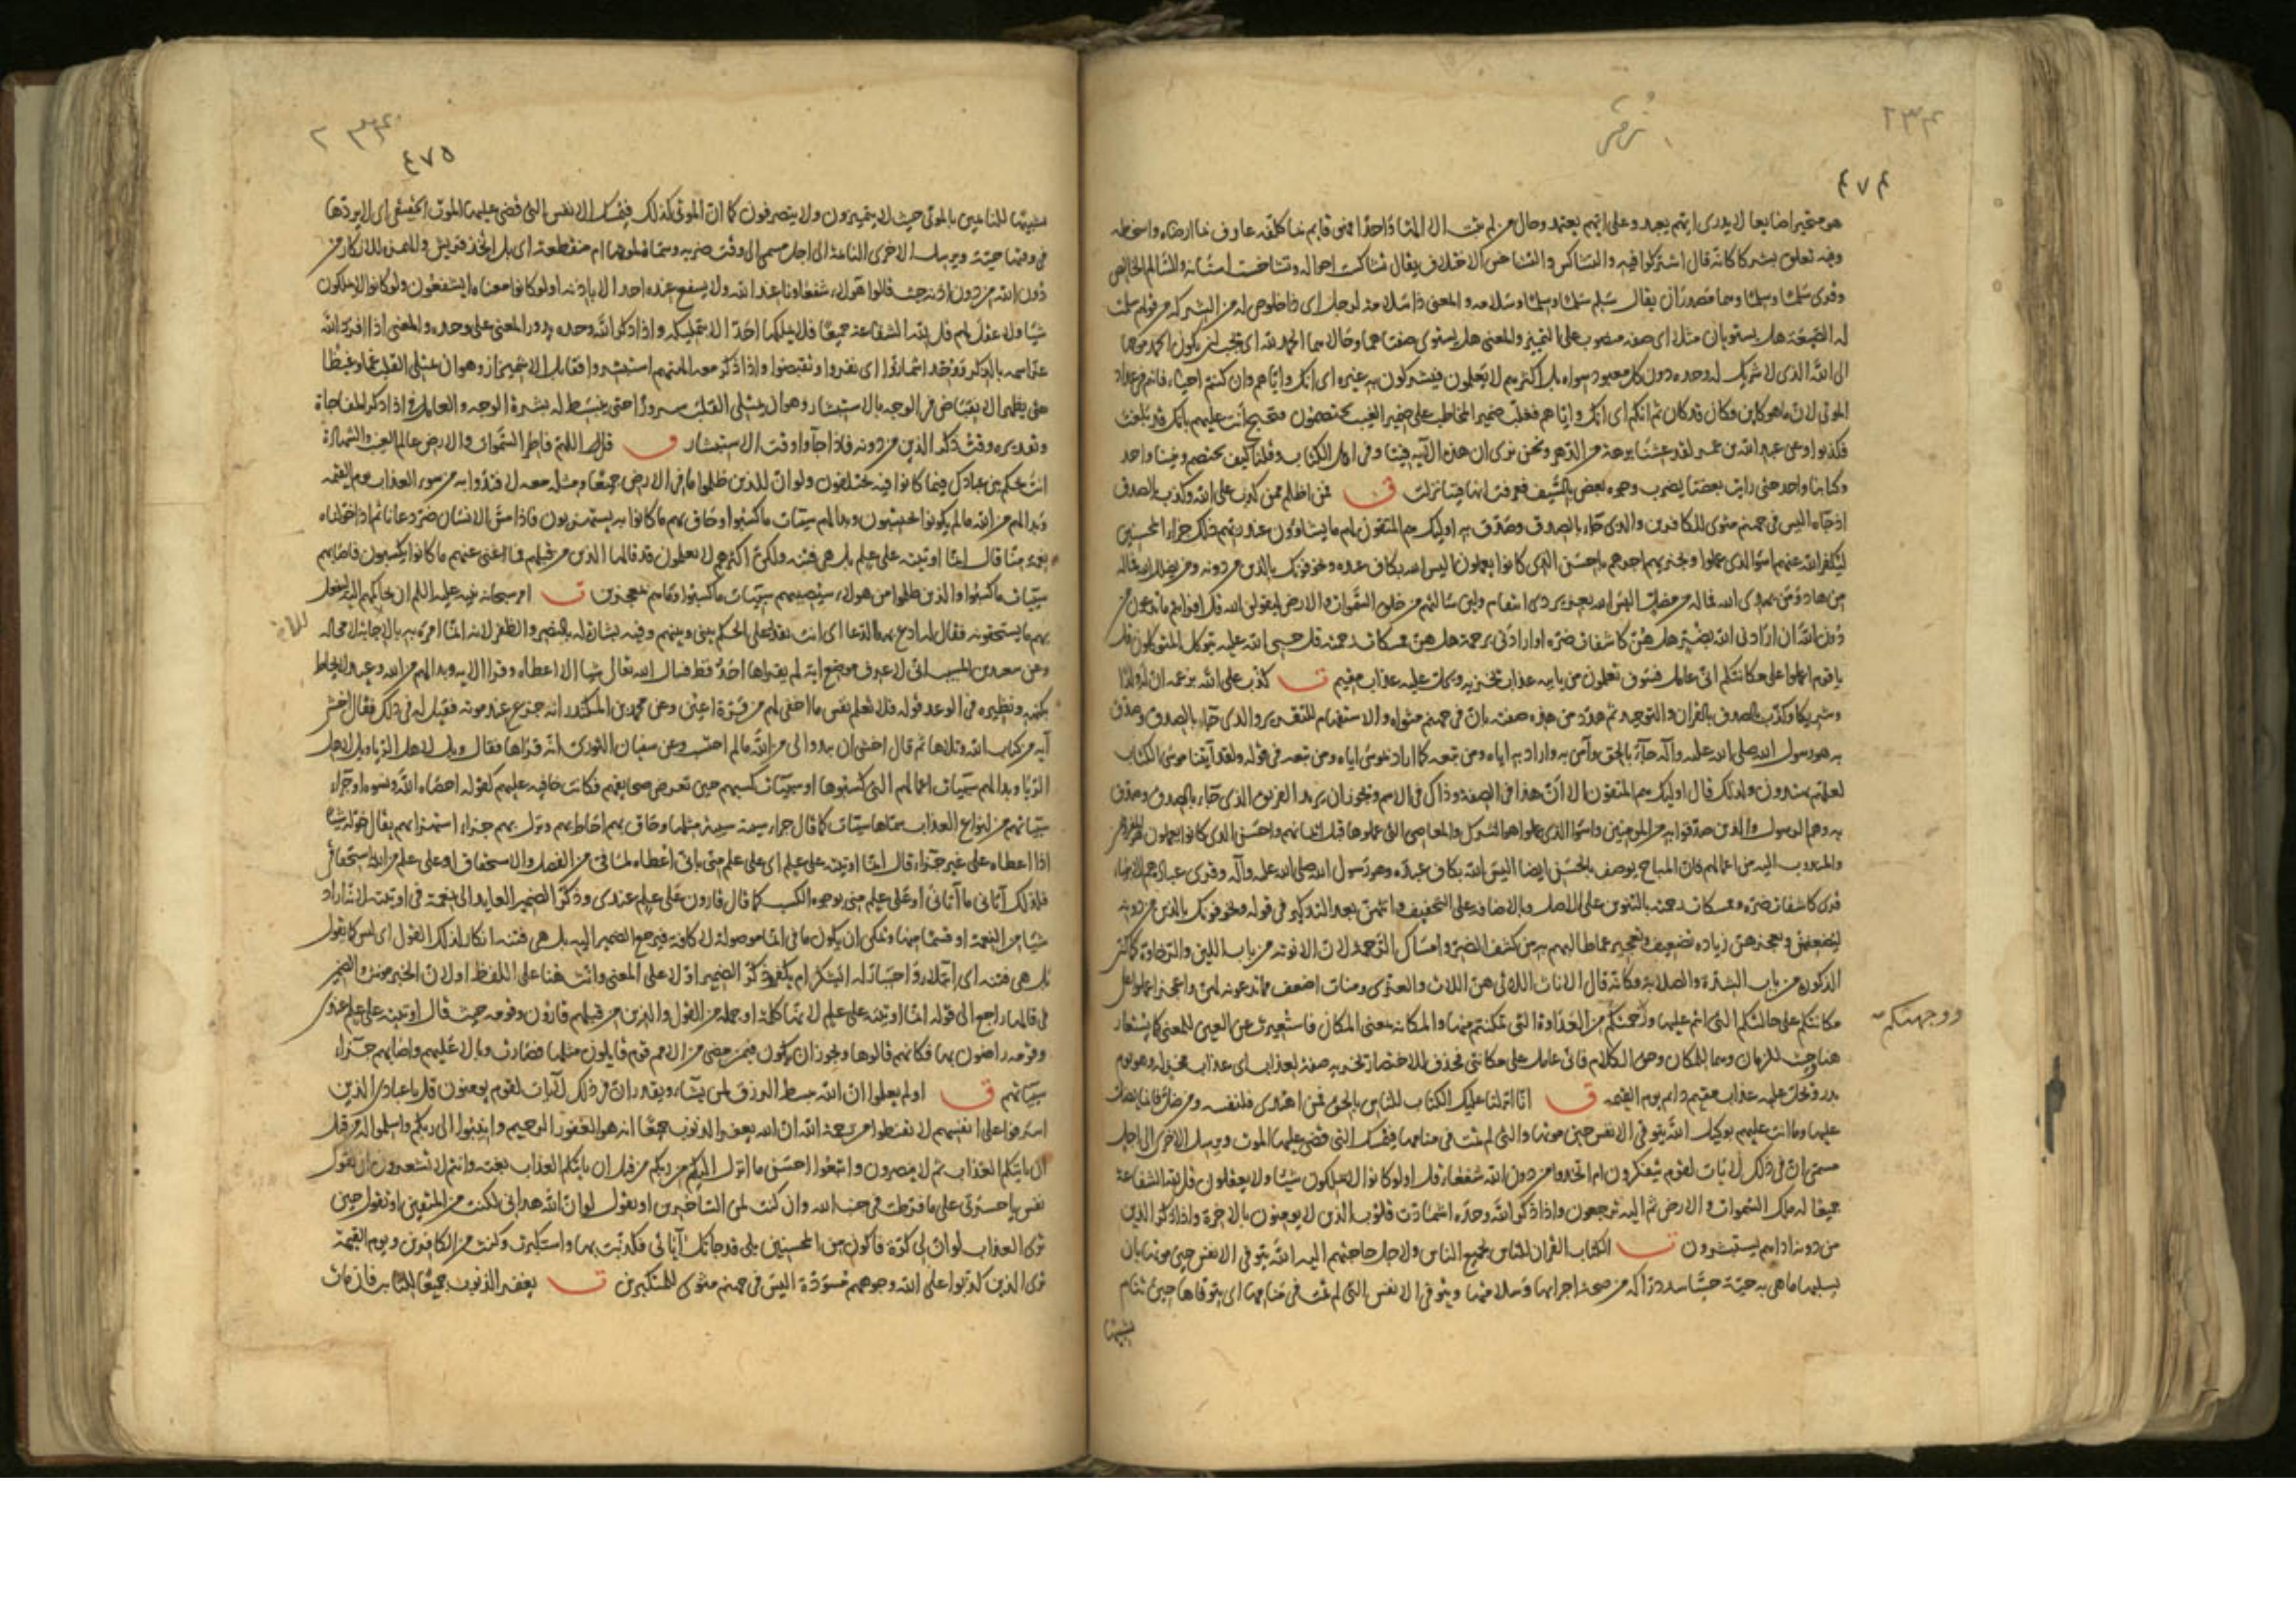 ٢٣٤
زمر
٤٧٤
هو متحير ضايع لا يدرى ايهم يعبد وعلى ايهم يعتمد وحال من لم يثبت الا الها واحدا فهو قايم بما كلفه عارف بما ارضاه واسخطه
وفيه تعلق بشركا كانه قال اشتركوا فيه والتشاكس والتشاخس الاختلاف يقال تشاكست احواله وتشاخست اسنانه والسالم الخالص
وقرى سَلَما وسِلْما وهما مصدران يقال سلم سَلَما وسِلْما وسلامة والمعنى ذا سلامة لرجل اى ذا خلوص له من الشركة من قولهم سلمت
له الضيعة هل يستويان مثلا اى صفة منصوب على التمييز والمعنى هل يستوى صفتاهما وحالاهما الحمد لله اى يجب ان يكون الحمد موجها
الى الله الذى لا شريك له وحده دون كل معبود سواه بل اكثرهم لا يعلمون فيشركون به غيره اى انك واياهم وان كنتم احياء فانتم فى عداد
الموتى لان ما هو كاين فكان قد كان ثم انكم اى انك واياهم فغلب ضمير المخاطب على ضمير الغيب تختصمون فتحتج انت عليهم بانك قد بلغت
فكذبوا وعن عبد الله بن عمر لقد عشنا برهة من الدهر ونحن نرى ان هذه الآية فينا وفى اهل الكتاب وقلنا كيف نختصم ونبينا واحد
وكتابنا واحد حتى رايت بعضنا يضرب وجوه بعض بالسيف فعرفت انها فينا نزلت ق فمن اظلم ممن كذب على الله وكذب بالصدق
اذ جاه اليس فى جهنم مثوى للكافرين والذى جاء بالصدق وصدق به اوليك هم المتقون لهم ما يشاؤن عند ربهم ذلك جزاء المحسنين
ليكفر الله عنهم اسوا الذى عملوا ويجزيهم اجرهم باحسن الذى كانوا يعملون اليس الله بكاف عبده ويخوفونك بالذين من دونه ومن يضلل الله فما له
من هاد ومن يهدى الله فما له من مضل اليس الله بعزيز ذى انتقام ولين سالتهم من خلق السموات والارض ليقولن الله قل افرايتم ما تدعون من
دون الله ان ارادنى الله بضر هل هن كاشفات ضره او ارادنى برحمة هل هن ممسكات رحمته قل حسبى الله عليه يتوكل المتوكلون قل
يا قوم اعملوا على مكانتكم انى عامل فسوف تعلمون من ياتيه عذاب يخزيه ويحل عليه عذاب مقيم ت كذب على الله بزعمه ان له ولدا
وشريكا وكذب بالصدق بالقران والتوحيد ثم هدد من هذه صفته بان فى جهنم مثواه والاستفهام للتقرير والذى جاء بالصدق وصدق
به هو رسول الله صلى الله عليه وآله جاء بالحق وآمن به واراد به اياه ومن تبعه كما اراد بموسى اياه ومن تبعه فى قوله ولقد آتينا موسى الكتاب
لعلهم يهتدون ولذلك قال اوليك هم المتقون الا ان هذا فى الصفة وذاك فى الاسم ويجوز ان يريد الفريق الذى جاء بالصدق وصدق
به وهم الرسول والذين صدقوا به من المومنين واسوا الذى عملوا هو الشرك والمعاصى التى عملوها قبل ايمانهم واحسن الذى كانوا يعملون
والمندوب اليه من اعمالهم فان المباح يوصف بالحسن ايضا اليس الله بكاف عبده وهو رسول الله صلى الله عليه وآله وقرى عباده هم الانبياء
قرى كاشفات ضره وممسكات رحمته بالتنوين على الاصل وبالاضافة على التخفيف وانثهن بعد التذكير فى قوله ويخوفونك بالذين من دونه
ليضعفهن ويعجزهن زيادة تضعيف وتعجيز عما طالبهم به من كشف الضر وامساك الرحمة لان الانوثة من باب اللين والرخاوة كما ان
الذكورة من باب الشدة والصلابة فكانه قال الاناث اللاتى هن اللات والعزى ومنات اضعف مما تدعونه لهن واعجز اعملوا على
مكانتكم على حالتكم التى انتم عليها من العداوة التى تمكنتم منها والمكانة بمعنى المكان فاستعيرت عن العين للمعنى كما يستعار
ووجهتكم
هنا وحيث للزمان وهما للمكان وحق الكلام فانى عامل على مكانتى فحذف للاختصار يخزيه صفة لعذاب اى عذاب مخز له وهو يوم
بدر ويحل عليه عذاب مقيم دايم يوم القيمة ق انا انزلنا عليك الكتاب للناس بالحق فمن اهتدى فلنفسه ومن ضل فانما يضل
عليها وما انت عليهم بوكيل الله يتوفى الانفس حين موتها والتى لم تمت فى منامها فيمسك التى قضى عليها الموت ويرسل الاخرى الى اجل
مسمى ان فى ذلك لآيات لقوم يتفكرون ام اتخذوا من دون الله شفعاء قل اولو كانوا لا يملكون شيئا ولا يعقلون قل لله الشفاعة
جميعا له ملك السموات والارض ثم اليه ترجعون واذا ذكر الله وحده اشمازت قلوب الذين لا يومنون بالاخرة واذا ذكر الذين
من دونه اذا هم يستبشرون ت الكتاب القران للناس لجميع الناس ولاجل حاجتهم اليه الله يتوفى الانفس حين موتها بان
يسلبها ما هى به حية حساسة دراكة من صحة اجزايها وسلامتها ويتوفى الانفس التى لم تمت فى منامها اى يتوفاها حين تنام
تشبيها
٢٣٤
٤٧٥
تشبيها للنايمين بالموتى حيث لا يتميزون ولا يتصرفون كما ان الموتى كذلك فيمسك الانفس التى قضى عليها الموت الحقيقى اى لا يردها
فى وقتها حية ويرسل الاخرى النايمة الى اجل مسمى الى وقت ضربه ام منقطعة اى بل اتخذ قريش والهمزة للانكار من
دون الله من دون اذنه حيث قالوا هولاء شفعاونا عند الله ولا يشفع عنده احد الا باذنه اولو كانوا معناه ايشفعون ولو كانوا لا يملكون
شيئا ولا عقل لهم قل لله الشفاعة جميعا فلا يملكها احد الا بتمليكه واذا ذكر الله وحده يدور المعنى على وحده والمعنى اذا افرد الله
عز اسمه بالذكر ووحد اشمازوا اى نفروا وتقبضوا واذا ذكر معه الهتهم استبشروا وقابل الاشميزاز وهو ان يمتلى القلب غما وغيظا
حتى يظهر الانقباض فى الوجه بالاستبشار وهو ان يمتلى القلب سرورا حتى ينبسط له بشرة الوجه والعامل فى اذا ذكر المفاجاة
وتقديره وقت ذكر الذين من دونه فاذا جآوا وقت الاستبشار ق قل اللهم فاطر السموات والارض عالم الغيب والشهادة
انت تحكم بين عبادك فيما كانوا فيه يختلفون ولو ان للذين ظلموا ما فى الارض جميعا ومثله معه لافتدوا به من سوء العذاب يوم القيمة
وبدا لهم من الله ما لم يكونوا يحتسبون وبدا لهم سيئات ما كسبوا وحاق بهم ما كانوا به يستهزون فاذا مس الانسان ضر دعانا ثم اذا خولناه
نعمة منا قال انما اوتيته على علم بل هى فتنة ولكن اكثرهم لا يعلمون قد قالها الذين من قبلهم فما اغنى عنهم ما كانوا يكسبون فاصابهم
سيئات ما كسبوا والذين ظلموا من هولاء سيصيبهم سيئات ما كسبوا وما هم بمعجزين ت امر سبحانه نبيه عليه السلم ان يحاكمهم اليه ليفعل
بهم ما يستحقونه فقال له ادع بهذا الدعا اى انت تقدر على الحكم بينى وبينهم وفيه بشارة له بالنصر والظفر لانه انما امره به بالاجابة لا محالة
وعن سعيد بن المسيب انى لاعرف موضع اية لم يقراها احد قط فسال الله تعالى شيئا الا اعطاه وقرا الاية وبدا لهم من الله وعيد لا يحاط
بكنهه ونظيره فى الوعد قوله فلا تعلم نفس ما اخفى لهم من قرة اعين وعن محمد بن المنكدر انه جزع عند موته فقيل له فى ذلك فقال اخشى
آية من كتاب الله وتلاها ثم قال اخشى ان يبدو الى من الله ما لم احتسب وعن سفيان الثورى انه قراها فقال ويل لاهل الريا ويل لاهل
الريا وبدا لهم سيئات اعمالهم التى كسبوها او سيئات كسبهم حين تعرض صحايفهم فكانت خافية عليهم كقوله احصاه الله ونسوه او جزاء
سيئاتهم من انواع العذاب سماها سيئات كما قال جزاء سيئة سيئة مثلها وحاق بهم احاط بهم ونزل بهم جزاء استهزايهم يقال خوله شيئا
اذا اعطاه على غير جزاء قال انما اوتيته على علم اى على علم منى بانى اعطاه لما فى من الفضل والاستحقاق او على علم من الله باستحقاقى
فلذلك آتانى ما آتانى او على علم منى بوجوه الكسب كما قال قارون على علم عندى وذكر الضمير العايد الى نعمة فى اوتيته لانه اراد
شيئا من النعمة او قسما منها ويمكن ان يكون ما فى انما موصولة لا كافة فيرجع الضمير اليه بل هى فتنة انكار لذلك القول اى ليس كما يقول
بل هى فتنة اى ابتلاء واختبار له ايشكر ام يكفر وذكر الضمير اولا على المعنى وانث هنا على اللفظ او لان الخبر مونث والضمير
فى قالها راجع الى قوله انما اوتيته على علم لانها كلمة او جملة من القول والذين من قبلهم قارون وقومه حيث قال اوتيته على علم عندى
وقومه راضون بها فكانهم قالوها ويجوز ان يكون فيمن مضى من الامم قوم قايلون مثلها فصارت وبالا عليهم واصابهم جزاء
سيئاتهم ق اولم يعلموا ان الله يبسط الرزق لمن يشاء ويقدر ان فى ذلك لآيات لقوم يومنون قل يا عبادى الذين
اسرفوا على انفسهم لا تقنطوا من رحمة الله ان الله يغفر الذنوب جميعا انه هو الغفور الرحيم وانيبوا الى ربكم واسلموا له من قبل
ان ياتيكم العذاب ثم لا ينصرون واتبعوا احسن ما انزل اليكم من ربكم من قبل ان ياتيكم العذاب بغتة وانتم لا تشعرون ان تقول
نفس يا حسرتى على ما فرطت فى جنب الله وان كنت لمن الساخرين او تقول لو ان الله هدانى لكنت من المتقين او تقول حين
ترى العذاب لو ان لى كرة فاكون من المحسنين بلى قد جاتك آياتى فكذبت بها واستكبرت وكنت من الكافرين ويوم القيمة
ترى الذين كذبوا على الله وجوههم مسودة اليس فى جهنم مثوى للمتكبرين ت يغفر الذنوب جميعا للتايب فان مات